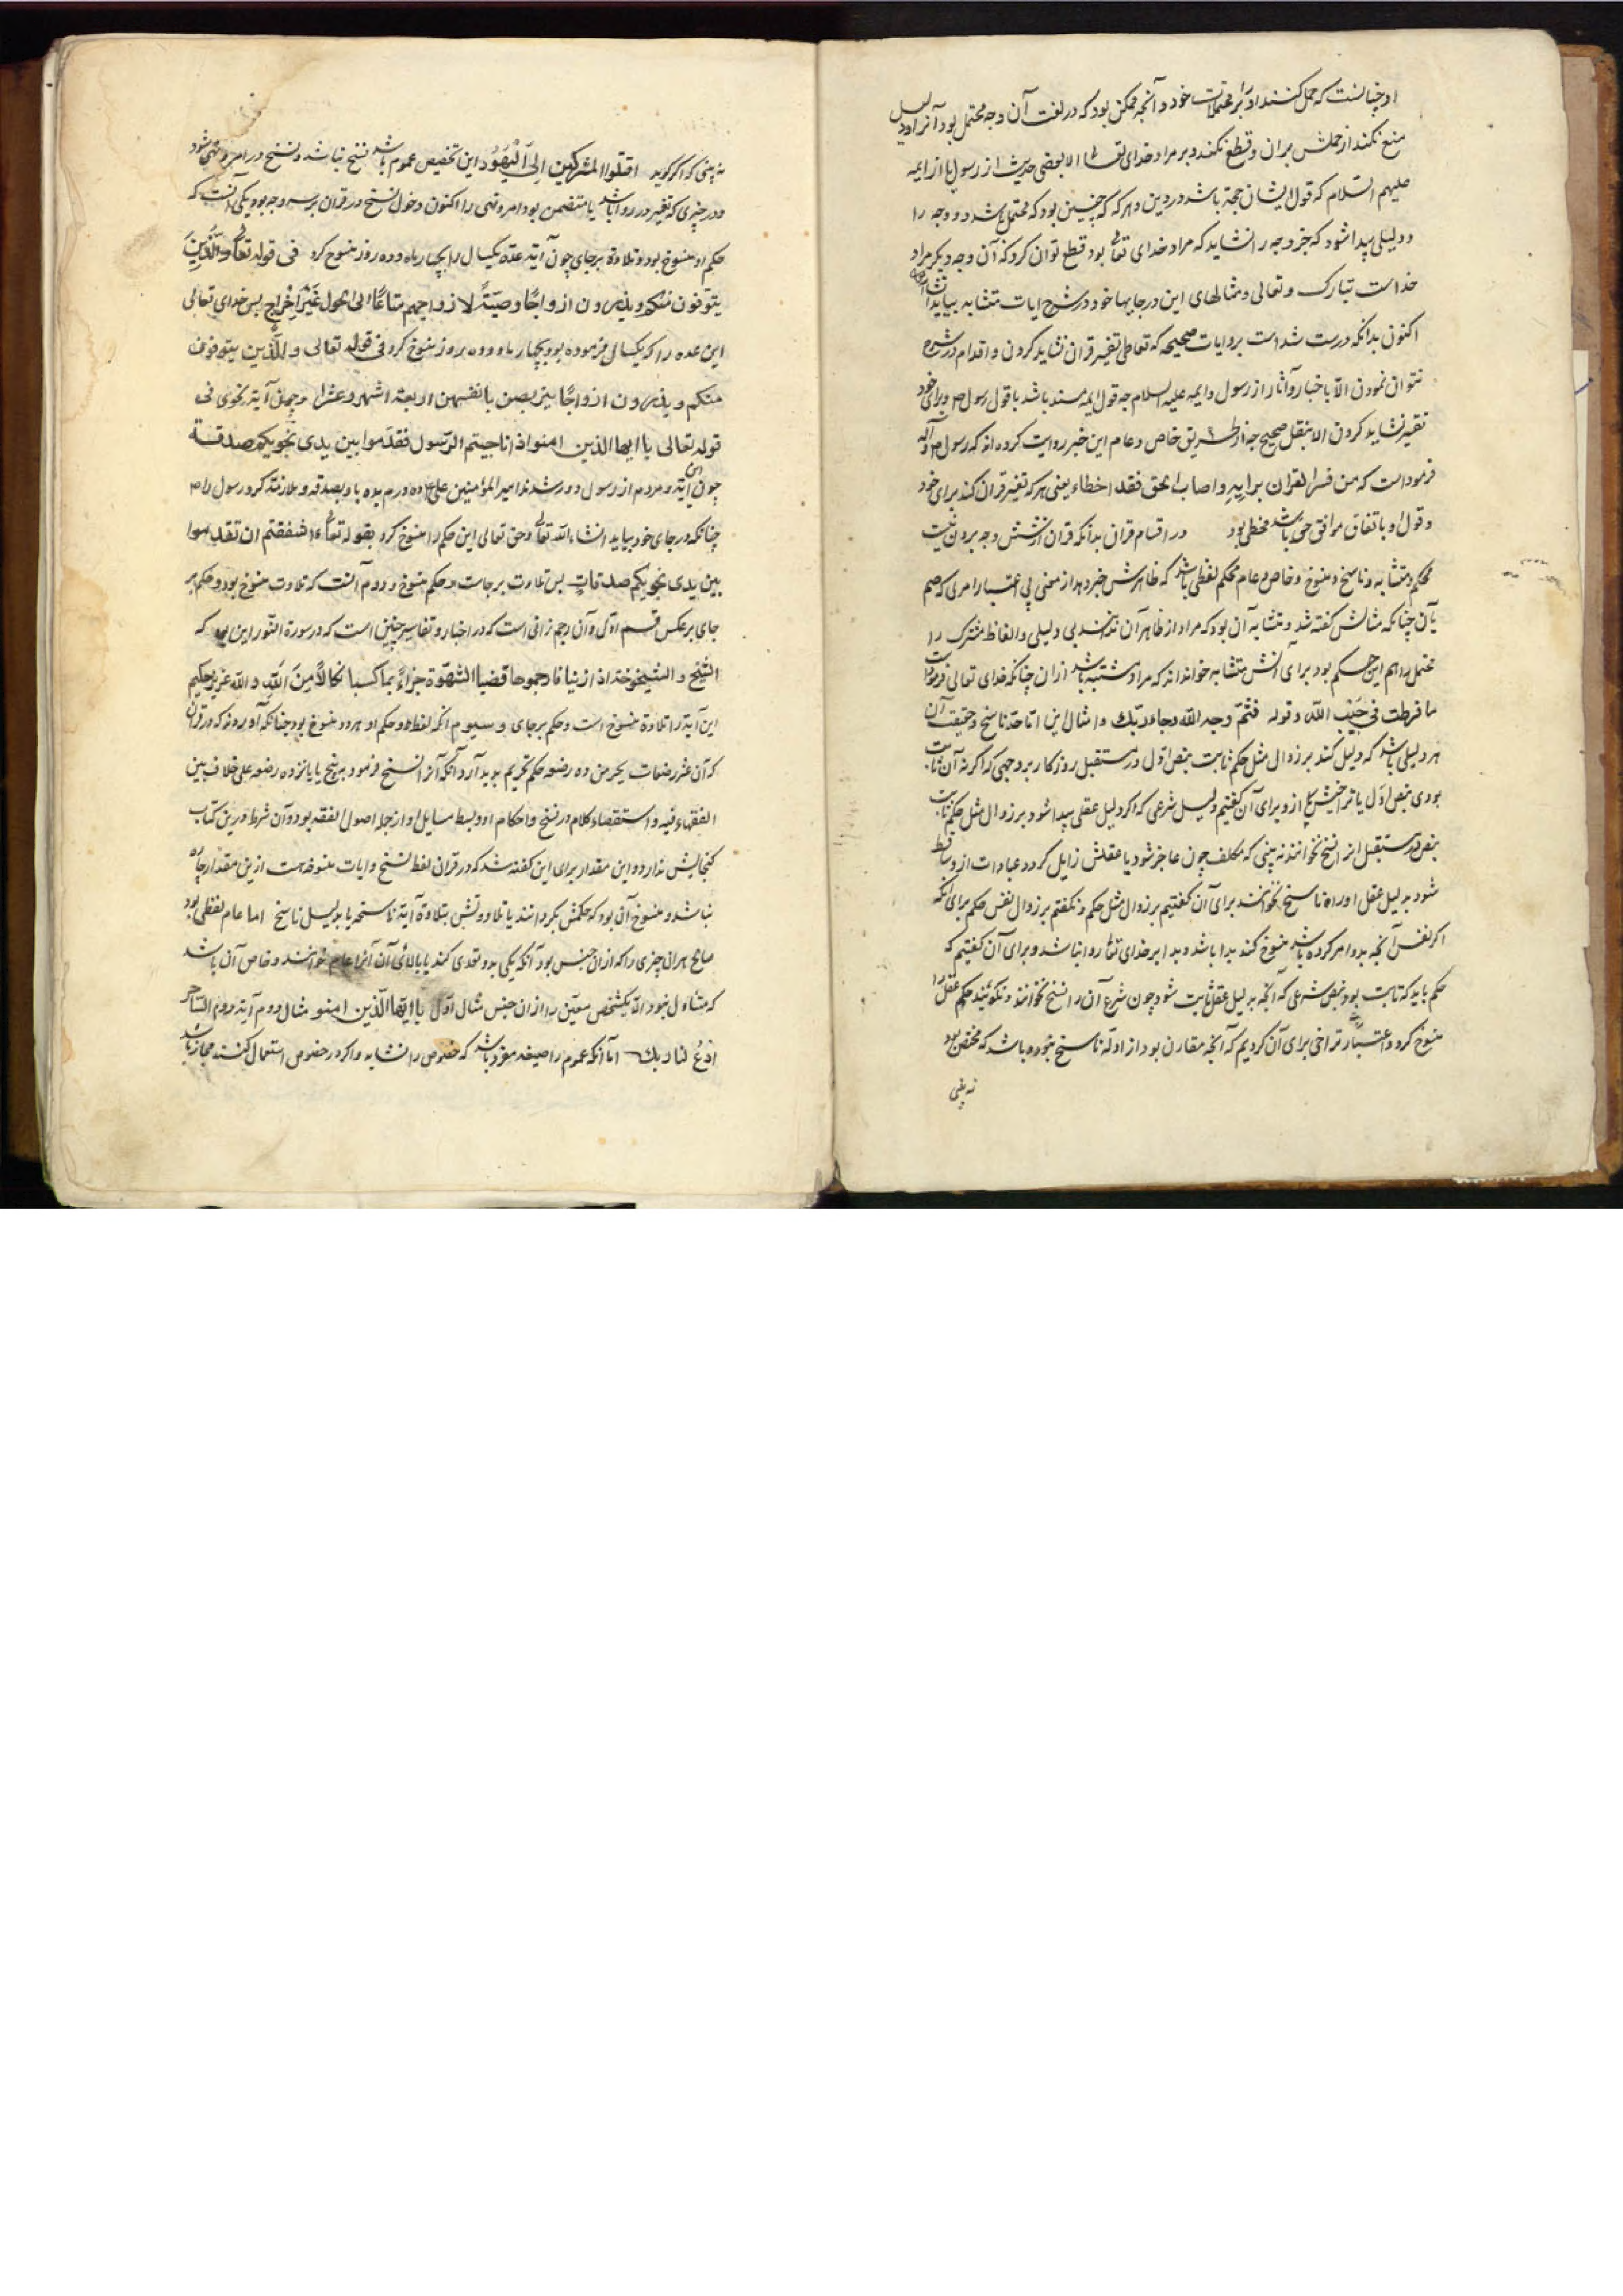 او چنانست که حمل کنند او را بر محتملات خود و آنچه ممکن بود که در لغت آن وجه محتمل بود آنرا و دلیل
منع نکند از حملش بران و قطع نکند بر مراد خدای تعالی الا بعضی حدیث از رسول یا از ایمه
علیهم السلام که قول ایشان حجة باشد در دین و هر که که چنین بود که محتمل باشد دو وجه را
و دلیلی پیدا شود که جز وجه را نشاید که مراد خدای تعالی بود قطع توان کرد که آن وجه دیگر مراد
خداست تبارک و تعالی و مثالهای این در جایها خود در شرح ایات متشابه بیاید انشاءالله
اکنون بدانکه درست شد است بروایات صحیحه که تعاطی تفسیر قران نشاید کردن و اقدام در شرح
نتوان نمودن الا باخبار و آثار از رسول و ایمه علیه السلام چه قول ایمه مسند باشد با قول رسول ص و برای خود
تفسیر نشاید کردن الا بنقل صحیح چه از طریق خاص و عام این خبر روایت کرده اند که رسول ص و آله
فرمود است که من فسر القران برایه و اصاب الحق فقد اخطاء یعنی هر که تفسیر قران کند برای خود
و قول او باتفاق موافق حق باشد مخطی بود در اقسام قران بدانکه قران از شش وجه برون نیست
محکم و متشابه و ناسخ و منسوخ و خاص و عام محکم لفظی باشد که ظاهرش خبر دهد از معنی بی اعتبار امری که ضم
بآن چنانکه مثالش گفته شد و متشابه آن بود که مراد از ظاهر آن ندانند بی دلیلی و الفاظ مشترک را
محتمل را هم این حکم بود برای آنش متشابه خواندند که مراد مشتبه باشد ازان چنانکه خدای تعالی فرمود است
ما فرطت فی جنب الله و قوله فثم وجه الله و جاء ربک و امثال این اما حد ناسخ و حقیقت آن
هر دلیلی باشد که دلیل کند بر زوال مثل حکم ثابت بنص اول در مستقبل روزگار بر وجهی که اگر نه آن ثابت
بودی بنص اول با تراخیش ازو برای آن گفتیم دلیل شرعی که اگر دلیل عقلی پیدا شود بر زوال مثل حکم ثابت
بنص در مستقبل انرا نسخ نخوانند نه بینی که مکلف چون عاجز شود یا عقلش زایل گردد عبادات ازو ساقط
شود بدلیل عقل او را ناسخ نخوانند برای آن گفتیم بر زوال مثل حکم و نگفتم بر زوال نفس حکم برای آنکه
اگر نفس آنچه بدو امر کرده باشد منسوخ کند بدا باشد و بدا بر خدای تعالی روا نباشد و برای آن گفتیم که
حکم باید که ثابت بود بنص شرعی که آنچه بدلیل عقل ثابت شود چون شرع آن را نسخ نخوانند و نگویند حکم عقل را
منسوخ کرد و اعتبار تراخی برای آن کردیم که آنچه مقارن بود از ادله ناسخ نبوده باشد که مخصص بود
نه بینی
نه بینی که اگر گوید اقتلوا المشرکین الی الیهود این تخصیص عموم باشد نسخ نباشد و نسخ در امر و نهی شود
و در خبری که تغییر در روا باشد یا متضمن بود امر و نهی را اکنون دخول نسخ در قران بر سه وجه بود یکی آنست که
حکم او منسوخ بود و تلاوة برجای چون آیته عده یکسال را بچهار ماه و ده روز منسوخ کرد فی قوله تعالی والذین
یتوفون منکم ویذرون ازواجا وصیة لازواجهم متاعا الی الحول غیر اخراج پس خدای تعالی
این عده را که یکسال فرموده بود بچهار ماه و ده روز منسوخ کرد فی قوله تعالی والذین یتوفون
منکم ویذرون ازواجا یتربصن بانفسهن اربعة اشهر وعشرا و همچنان آیه نجوی فی
قوله تعالی یا ایها الذین امنوا اذا ناجیتم الرسول فقدموا بین یدی نجویکم صدقة
چون این آیة و مردم از رسول دور شدند امیر المؤمنین علی ع ده درم بده بار بصدقه و ملازمة کرد رسول را ص
چنانکه در جای خود بیاید انشاء الله تعالی و حق تعالی این حکم را منسوخ کرد بقوله تعالی ءاشفقتم ان تقدموا
بین یدی نجویکم صدقات پس تلاوت برجاست و حکم منسوخ و دوم آنست که تلاوت منسوخ بود و حکم بر
جای بر عکس قسم اول و آن رجم زانی است که در اخبار و تفاسیر چنین است که در سورة النور این بود که
الشیخ والشیخوخة اذا زنیا فارجموها قضیا الشهوة جزاء بما کسبا نکالا من الله والله عزیز حکیم
این آیة را تلاوة منسوخ است و حکم برجای و سیوم انکه لفظ و حکم او هر دو منسوخ بود چنانکه آورده اند که در قران
که آن عشر رضعات یحرمن ده رضعه حکم تحریم بدید آرد آنکه آنرا نسخ فرمود به پنج یا پانزده رضعه علی خلاف بین
الفقهاء فیه و استقصاء کلام در نسخ و احکام او و بسط مسایل او از جمله اصول الفقه بود و آن شرط درین کتاب
گنجایش ندارد و این مقدار برای این گفته شد که در قران لفظ نسخ و ایات منسوخه هست ازین مقدار چاره
نباشد و منسوخ آن بود که حکمش بگردانند یا تلاوتش بتلاوة آیة ناسخه یا بدلیل ناسخ اما عام لفظی بود
صالح هران چیزی را که ازان جنس بود آنکه یکی بدو تعدی کند یا بالائی آن آنرا عام خوانند و خاص آن باشد
که متناول نبود الا یکشخص معین را ازان جنس مثال اول یا ایها الذین امنو مثال دوم آیة دوم الساحر
ادع لنا ربک اما آنکه عموم را صیغه مفرد باشد که خصوص را نشاید و اگر در خصوص استعمال کنند مجاز باشد